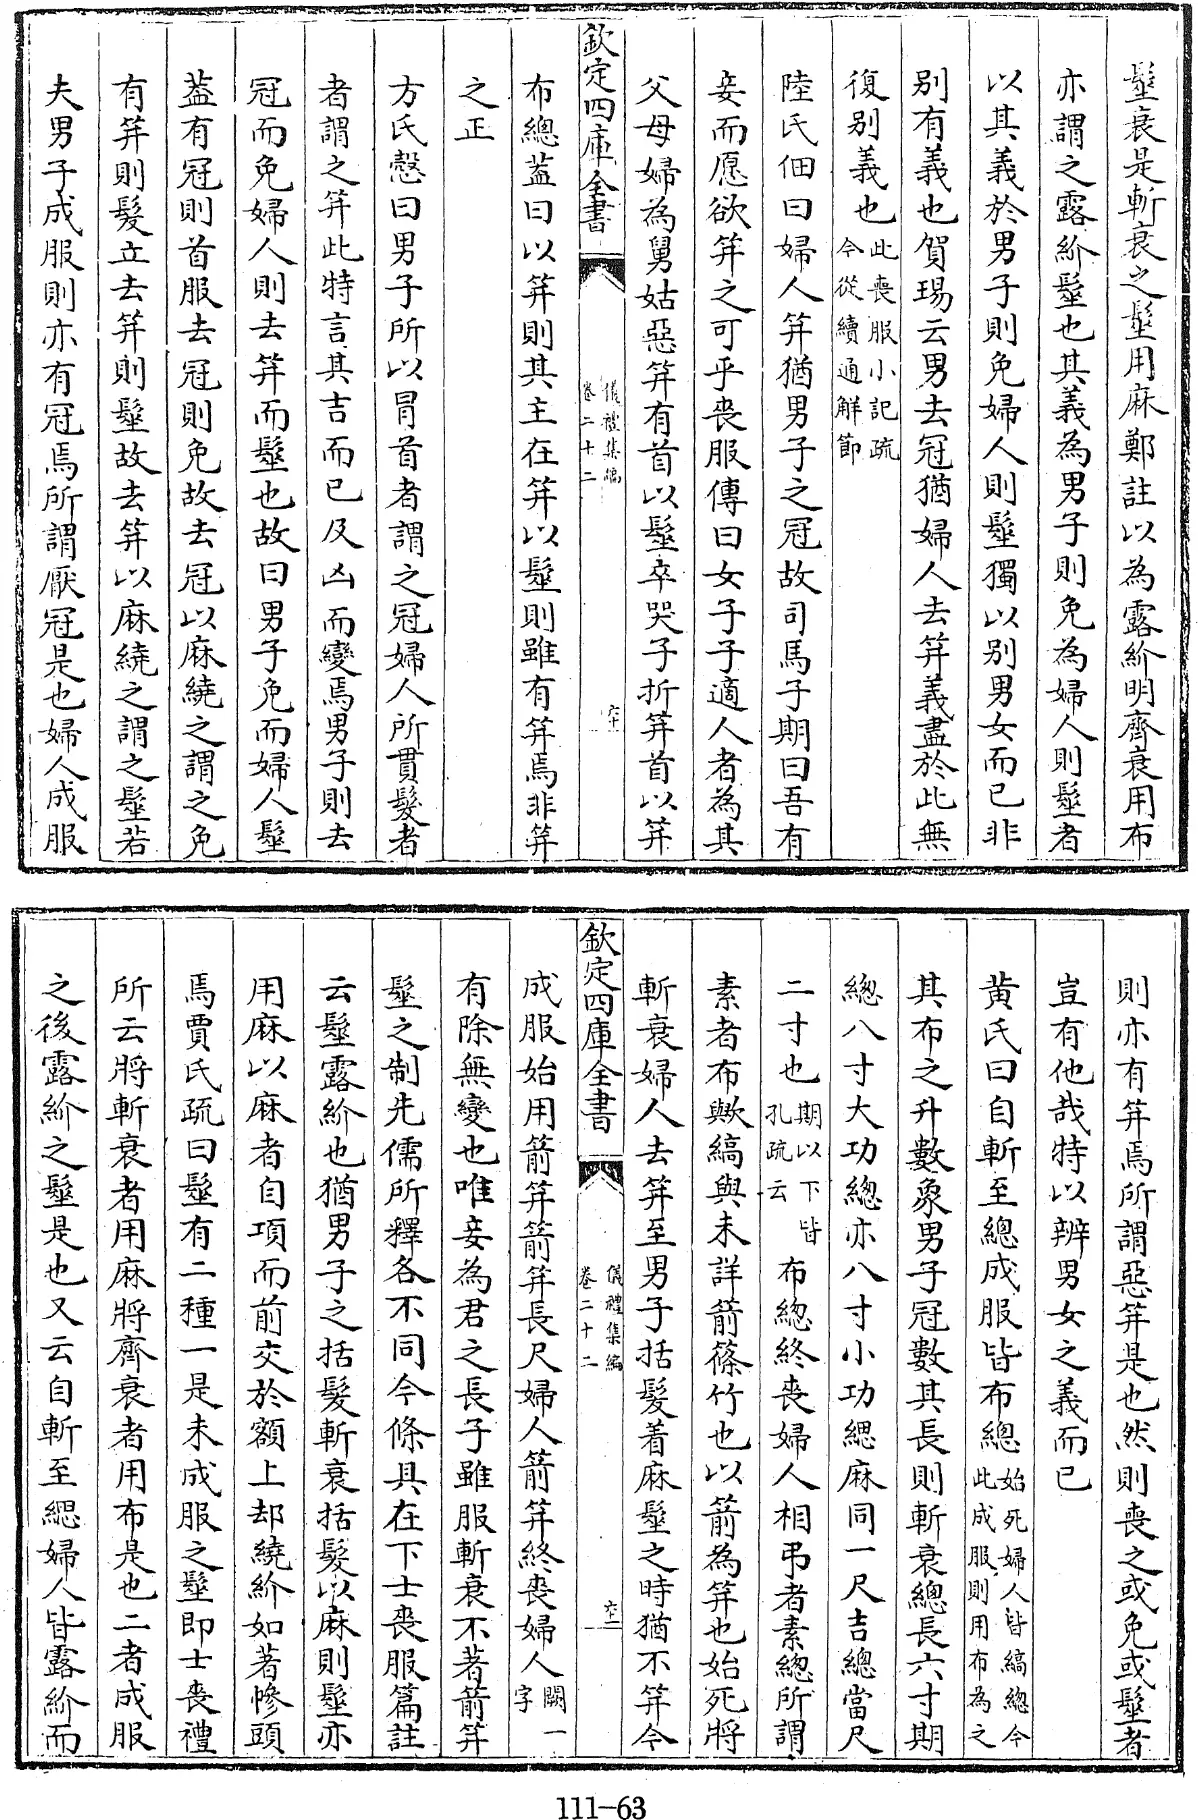 髽衰是斬衰之髽用麻鄭註以為露紒明齊衰用布
亦謂之露紒髽也其義為男子則免為婦人則髽者
以其義於男子則免婦人則髽獨以别男女而已非
别有義也賀瑒云男去冠猶婦人去笄義盡於此無
復别義也此喪服小記疏今從續通解節
陸氏佃曰婦人笄猶男子之冠故司馬子期曰吾有
妾而愿欲笄之可乎喪服傳曰女子子適人者為其
父母婦為舅姑惡笄有首以髽卒哭子折笄首以笄
欽定四庫全書
儀禮集編
卷二十二
六十
布總蓋曰以笄則其主在笄以髽則雖有笄焉非笄
之正
方氏慤曰男子所以冐首者謂之冠婦人所貫髮者
者謂之笄此特言其吉而已及凶而變焉男子則去
冠而免婦人則去笄而髽也故曰男子免而婦人髽
葢有冠則首服去冠則免故去冠以麻繞之謂之免
有笄則髮立去笄則髽故去笄以麻繞之謂之髽若
夫男子成服則亦有冠焉所謂厭冠是也婦人成服
則亦有笄焉所謂惡笄是也然則喪之或免或髽者
豈有他哉特以辨男女之義而已
黄氏曰自斬至緦成服皆布總始死婦人皆縞總今此成服則用布為之
其布之升數象男子冠數其長則斬衰總長六寸期
總八寸大功總亦八寸小功緦麻同一尺吉總當尺
二寸也期以下皆孔疏云布總終喪婦人相弔者素總所謂
素者布歟縞與未詳箭篠竹也以箭為笄也始死將
斬衰婦人去笄至男子括髮着麻髽之時猶不笄今
欽定四庫全書
儀禮集編
卷二十二
六十一
成服始用箭笄箭笄長尺婦人箭笄終喪婦人闕一字
有除無變也唯妾為君之長子雖服斬衰不著箭笄
髽之制先儒所釋各不同今條具在下士喪服篇註
云髽露紒也猶男子之括髮斬衰括髮以麻則髽亦
用麻以麻者自項而前交於額上却繞紒如著幓頭
焉賈氏疏曰髽有二種一是未成服之髽即士喪禮
所云將斬衰者用麻將齊衰者用布是也二者成服
之後露紒之髽是也又云自斬至緦婦人皆露紒而
111-63